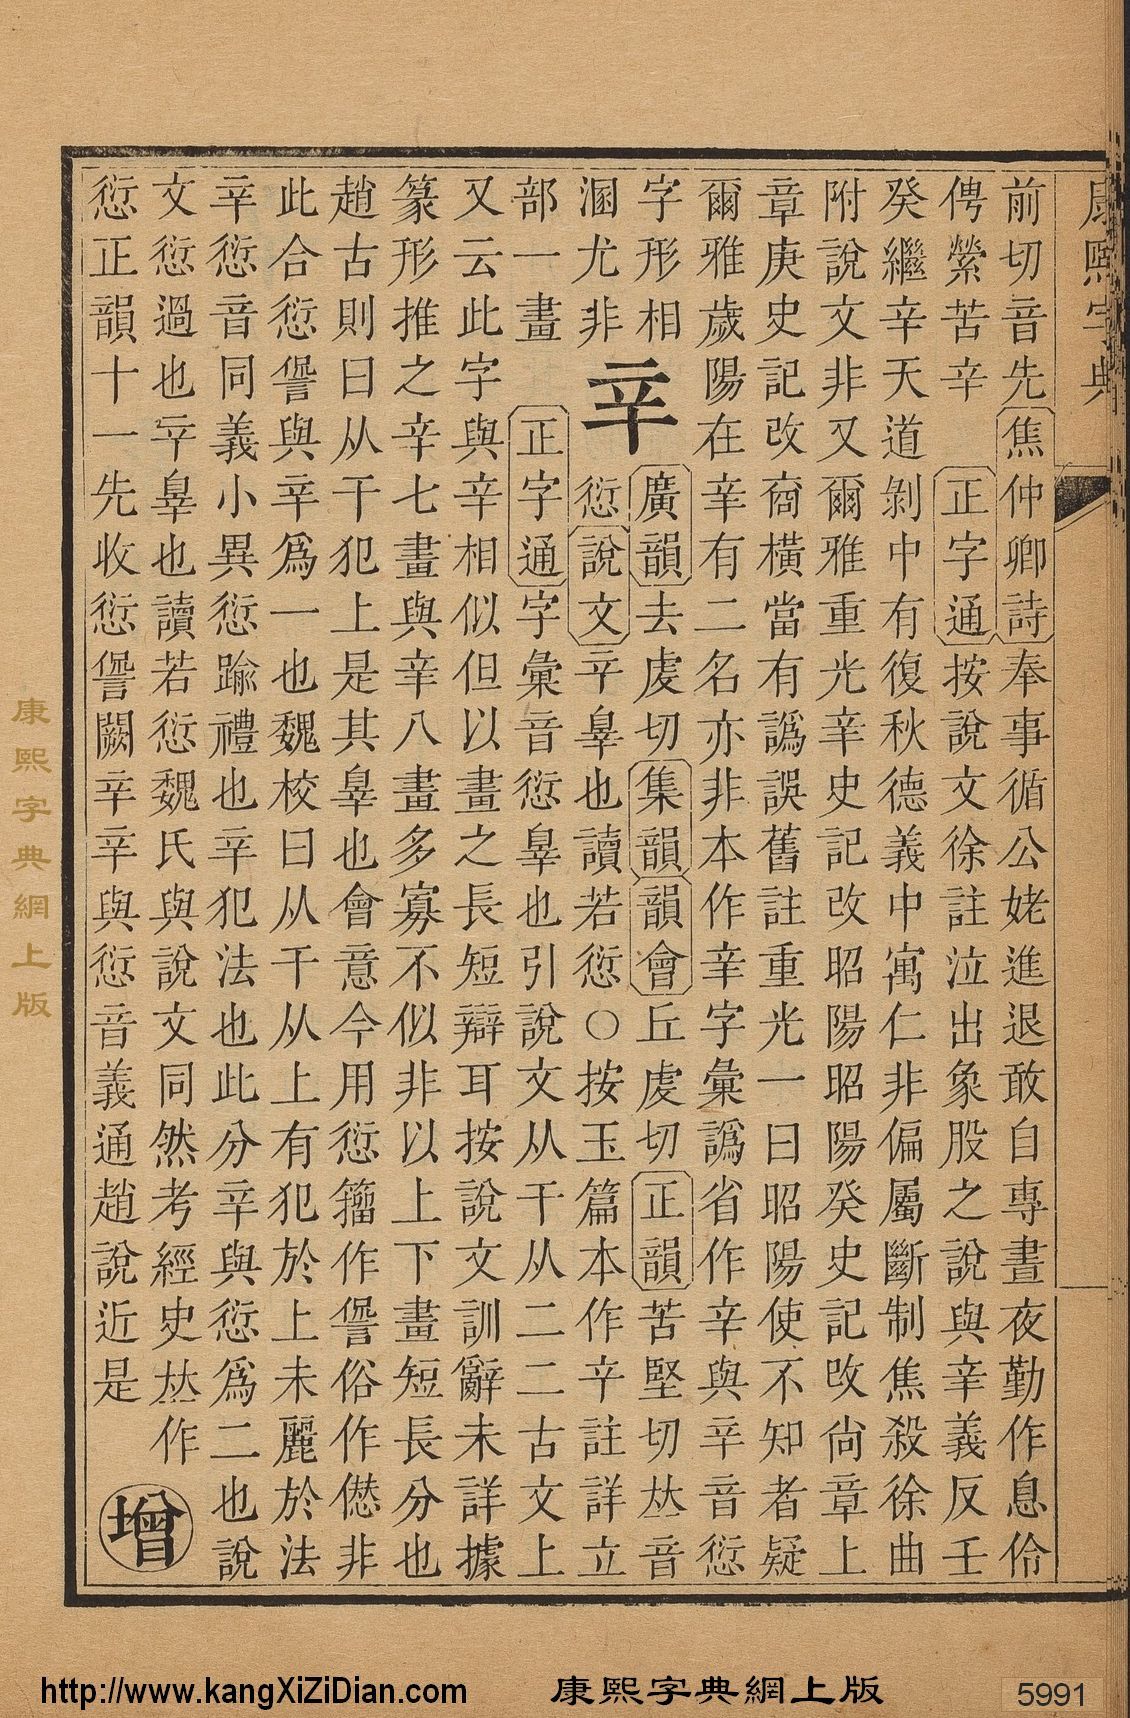 康熙字典
前切音先焦仲卿詩奉事循公姥進退敢自專晝夜勤作息伶
俜縈苦辛　正字通按說文徐註泣出象股之說與辛義反壬
癸繼辛天道剝中有復秋德義中寓仁非偏屬斷制焦殺徐曲
附說文非又爾雅重光辛史記改昭陽昭陽癸史記改尚章上
章庚史記改商橫當有譌誤舊註重光一曰昭陽使不知者疑
爾雅歲陽在辛有二名亦非本作辛字彙譌省作辛與䇂音愆
字形相
溷尤非
䇂
廣韻去虔切集韻韻會丘虔切正韻苦堅切𠀤音
愆說文䇂辠也讀若愆○按玉篇本作䇂註詳立
部一畫
正字通字彙音愆辠也引說文从干从二二古文上
又云此字與辛相似但以畫之長短辯耳按說文訓辭未詳據
篆形推之辛七畫與䇂八畫多寡不似非以上下畫短長分也
趙古則曰从干犯上是其辠也會意今用愆籀作諐俗作僁非
此合愆諐與䇂爲一也魏校曰从干从上有犯於上未麗於法
䇂愆音同義小異愆踰禮也䇂犯法也此分䇂與愆爲二也說
文愆過也䇂辠也讀若愆魏氏與說文同然考經史𠀤作
愆正韻十一先收愆諐闕䇂䇂與愆音義通趙說近是
增
康熙字典網上版
http://www.kangXiZiDian.com
康熙字典網上版
5991